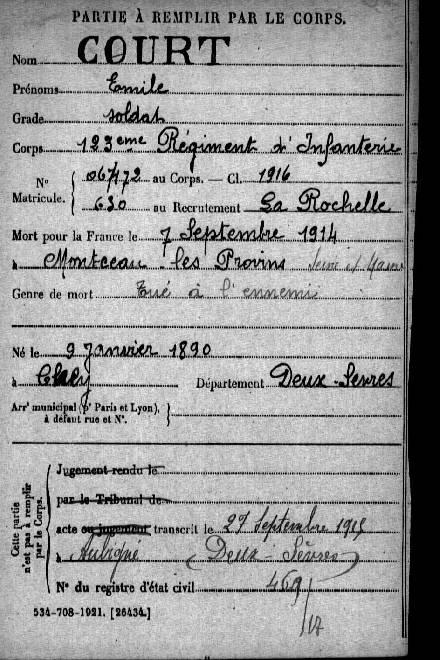 PARTIE À REMPLIR PAR LE CORPS.
Nom COURT
Prénoms Emile
Grade soldat
Corps 123eme Régiment d'Infanterie
N° Matricule. { 06472 au Corps. — Cl. 1916
630 au Recrutement La Rochelle
Mort pour la France le 7 Septembre 1914
à Montceau-les Provins Seine et Marne
Genre de mort Tué à l'ennemi
Né le 9 Janvier 1890
à Département Deux-Sevres
Arr' municipal (p' Paris et Lyon), à défaut rue et N°.
Cette partie n'est pas à remplir par le Corps.
Jugement rendu le
par le Tribunal de
acte ou jugement transcrit le 27 Septembre
à Aubigné (Deux-Sèvres)
N° du registre d'état civil 469/17
534-708-1921. [26434.]